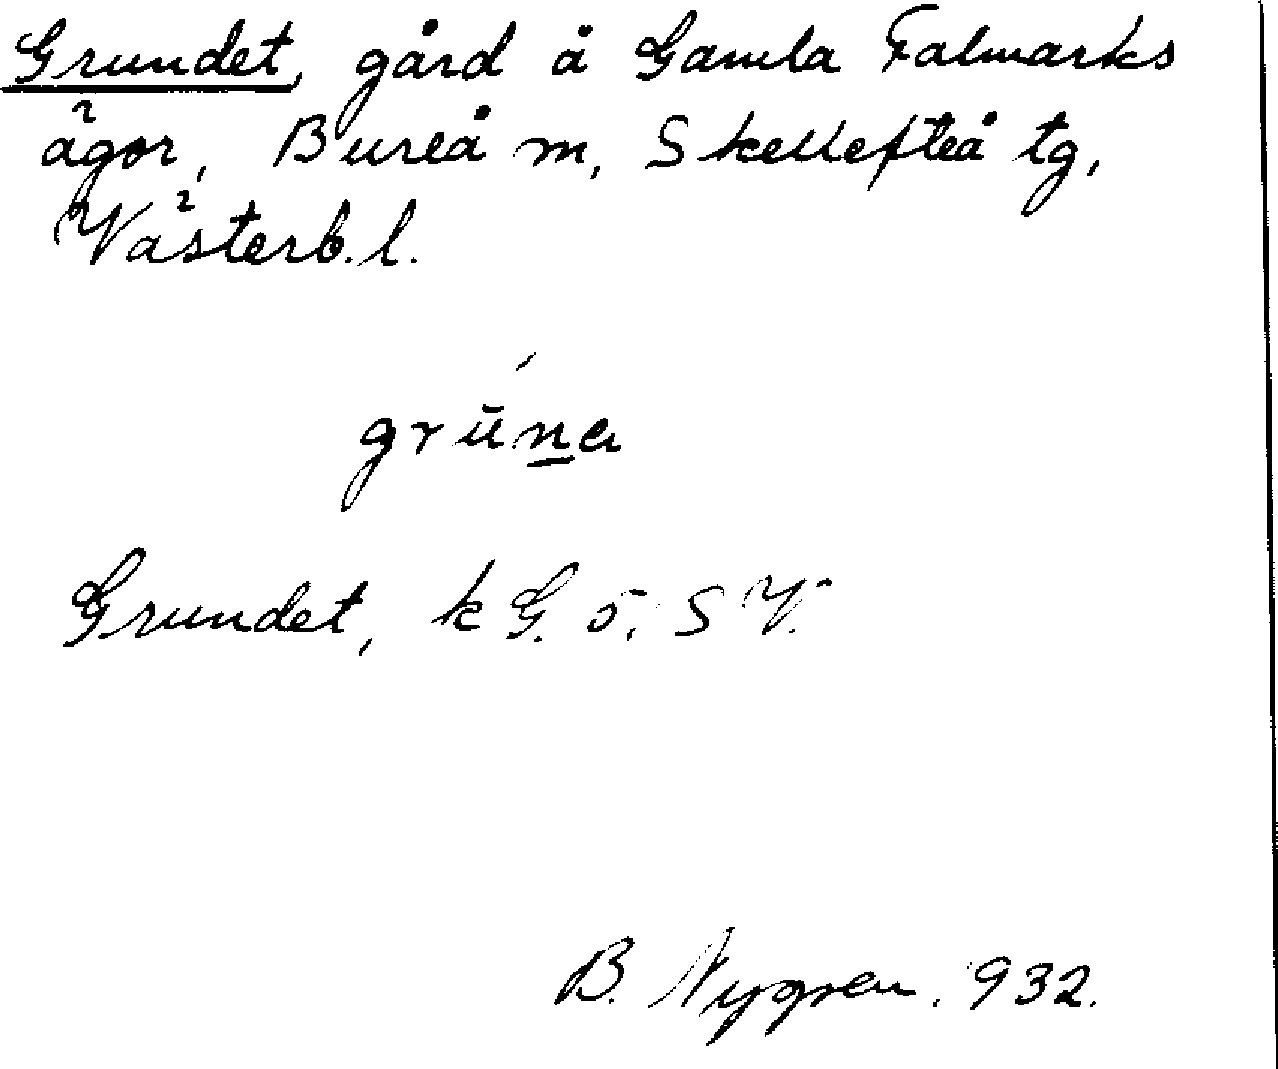 Grundet, gård å Gamla Falmarks
ägor, Bureå m, Skellefteå tg,
Västerb. l.
grūṉa
Grundet, k G. 5. S V.
B. Nygren. 932.